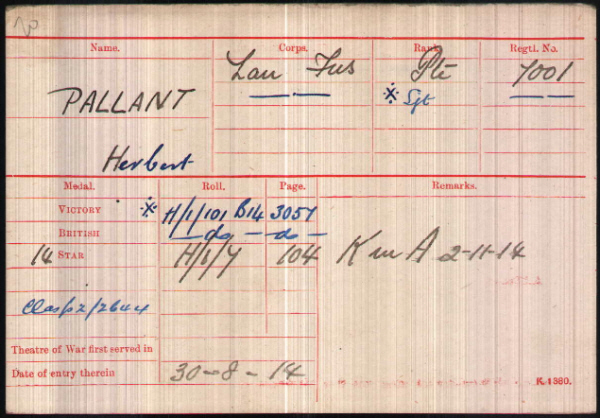 Name. Corps. Rank. Regtl. No.
Lan Fus Pte 7001
PALLANT ※ Sgt
Herbert
Medal. Roll. Page. Remarks.
VICTORY ※ H/1/101 B14 3057
BRITISH — do — do —
14 STAR H/1/7 104 K in A 2-11-14
Clasp 2/2644
Theatre of War first served in
Date of entry therein 30-8-14
K 1380.